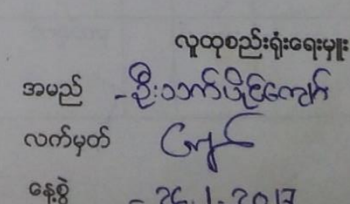 လူထုစည်းရုံးရေးမှူး
အမည် - ဦးသက်ပိုင်ကျော်
လက်မှတ်
နေ့စွဲ - 26.1.2017